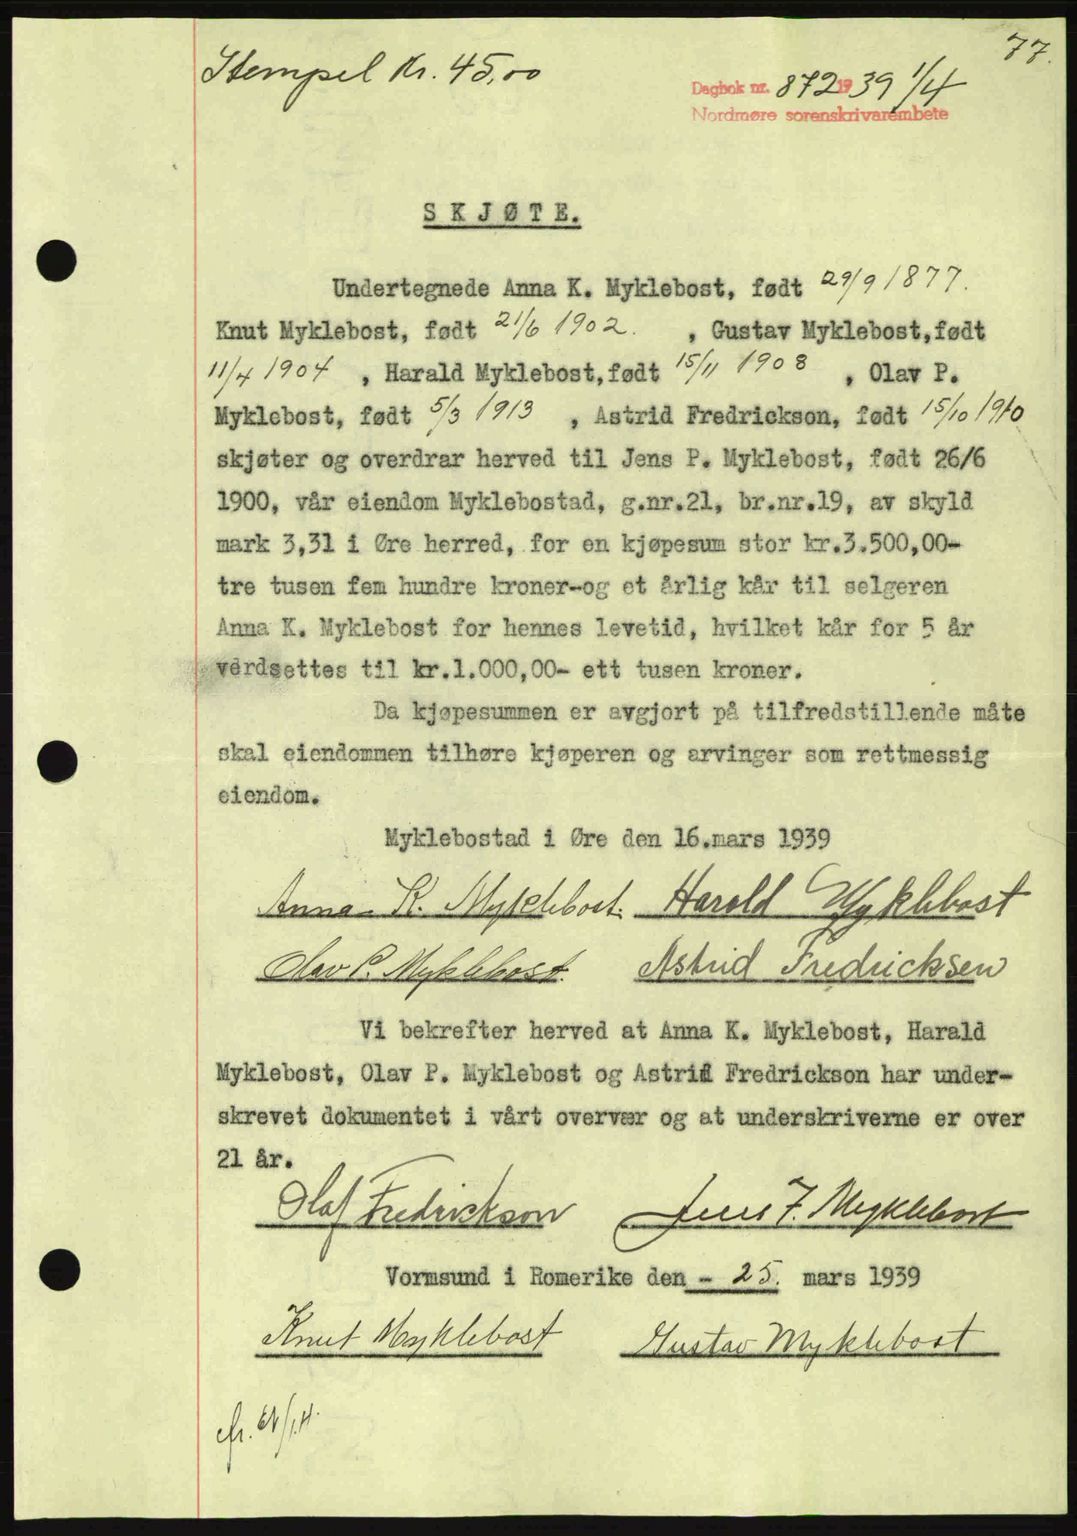 77.
Stempel Kr. 45,00
Dagbok nr. 872 1939 1/4
Nordmøre sorenskrivarembete
SKJØTE.
Undertegnede Anna K. Myklebost, født 29/9 1877.
Knut Myklebost, født 21/6 1902. , Gustav Myklebost,født
11/4 1904 , Harald Myklebost,født 15/11 1908 , Olav P.
Myklebost, født 5/3 1913 , Astrid Fredrickson, født 15/10 1910
skjøter og overdrar herved til Jens P. Myklebost, født 26/6
1900, vår eiendom Myklebostad, g.nr.21, br.nr.19, av skyld
mark 3,31 i Øre herred, for en kjøpesum stor kr.3.500,00-
tre tusen fem hundre kroner-og et årlig kår til selgeren
Anna K. Myklebost for hennes levetid, hvilket kår for 5 år
verdsettes til kr.1.000,00- ett tusen kroner.
Da kjøpesummen er avgjort på tilfredstillende måte
skal eiendommen tilhøre kjøperen og arvinger som rettmessig
eiendom.
Myklebostad i Øre den 16.mars 1939
Anna K. Myklebost. Harald Myklebost
Olav P. Myklebost. Astrid Fredricksen
Vi bekrefter herved at Anna K. Myklebost, Harald
Myklebost, Olav P. Myklebost og Astrid Fredrickson har under-
skrevet dokumentet i vårt overvær og at underskriverne er over
21 år.
Olaf Fredrickson Jens F. Myklebost
Vormsund i Romerike den - 25. mars 1939
Knut Myklebost Gustav Myklebost